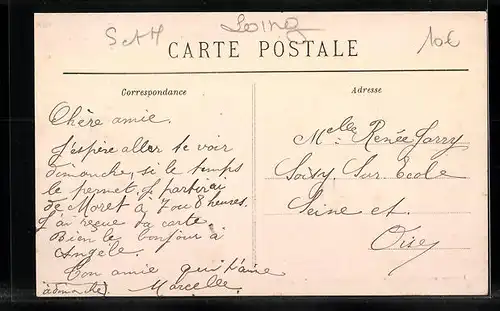 S et M
Loing
10€
CARTE POSTALE
Correspondance
Adresse
Chère amie.
J'espère aller te voir
dimanche, si le temps
le permet, je partirai
de Moret à 7 ou 8 heures.
J'ai reçue ta carte.
Bien le bonjour à
Angèle.
Ton amie qui t'aime
à dimanche)
Marcelle.
Melle Renée Garry
Soisy Sur Ecole
Seine et
Oise